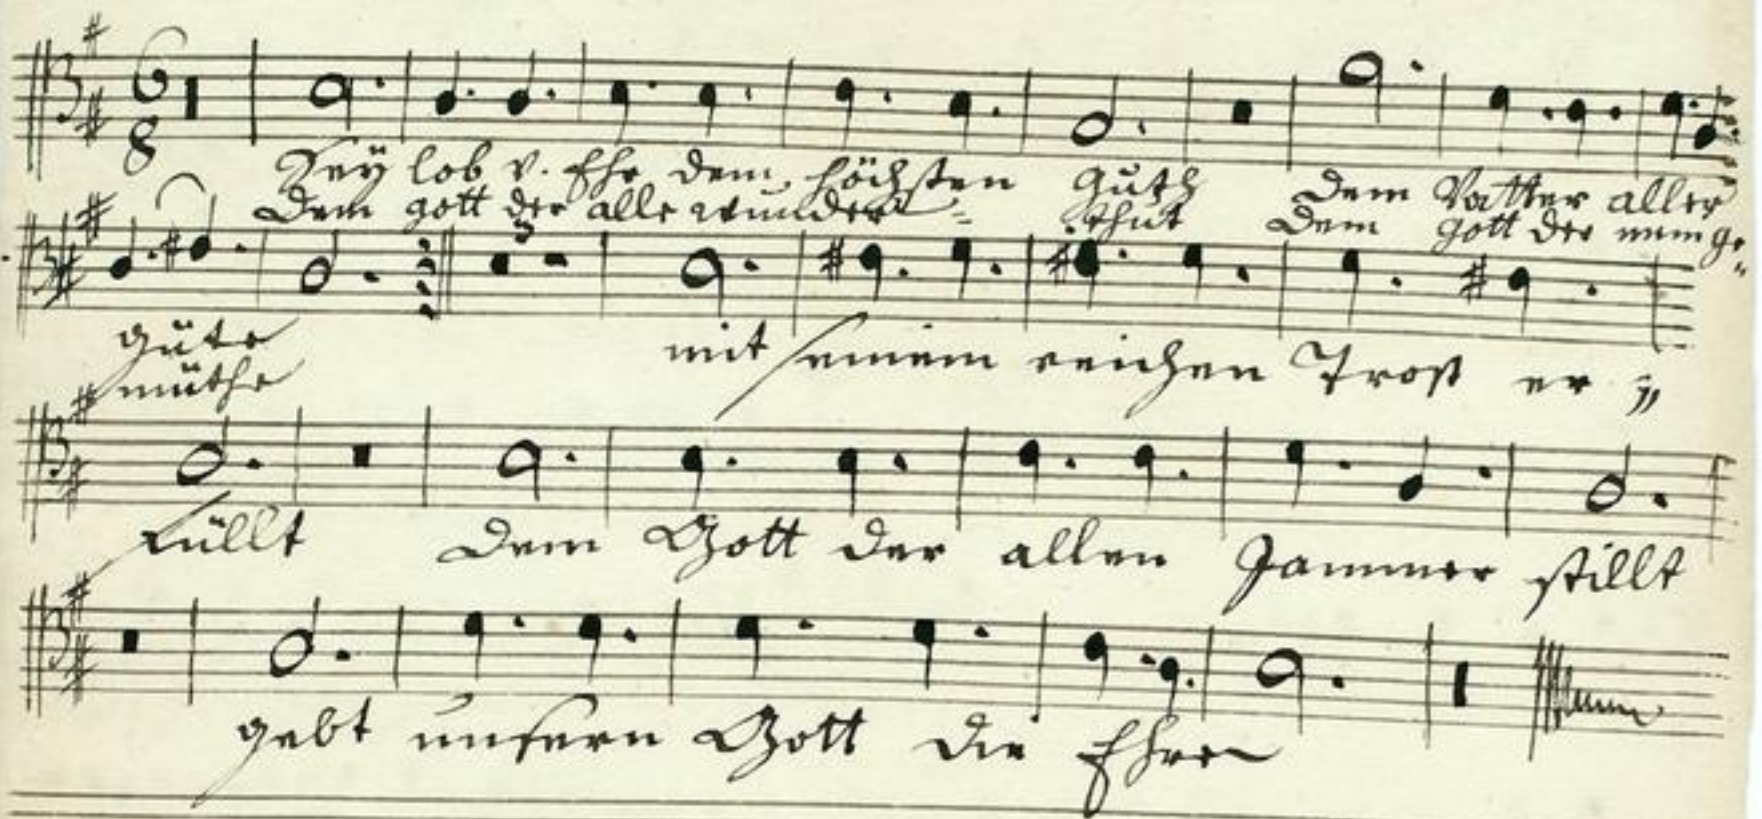 6
8
Seÿ lob v. Ehr dem höchsten Guth dem Vatter aller
dem gott der alle wunder = thut dem gott der mein ge„
güte mit seinem reichen Trost er„
müthe
füllt dem Gott der allen Jammer stillt
gebt unsern Gott die Ehre